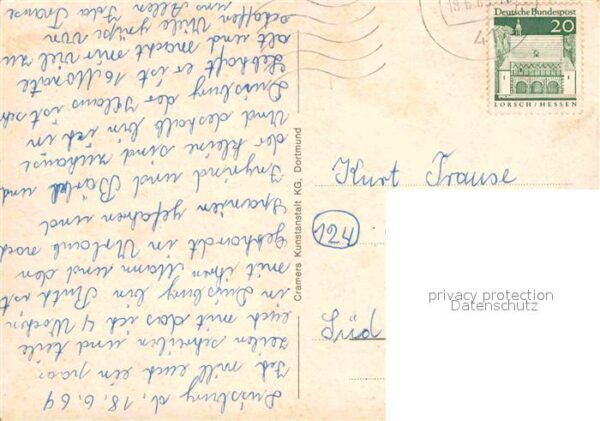 Duisburg d. 18.6.69
Ich will euch ein paar
zeilen schreiben und teile
euch mit das ich 4 Wochen
in Duisburg bin Ruth ist
mit ihren Mann und den
Gebhardt in Urlaub nach
Spanien gefahren und
Ingrind und Bärbel und
der kleine sind zuhause
Und deshalb bin ich in
Duisburg der Klaus ist sehr
Lebhaft er ist 16 Monate
alt und macht mir viel zu
schaffen Viele grüße von
uns Allen Ida Trause
Cramers Kunstanstalt KG, Dortmund
Deutsche Bundespost
20
LORSCH/HESSEN
Kurt Trause
124
Süd
privacy protection
Datenschutz